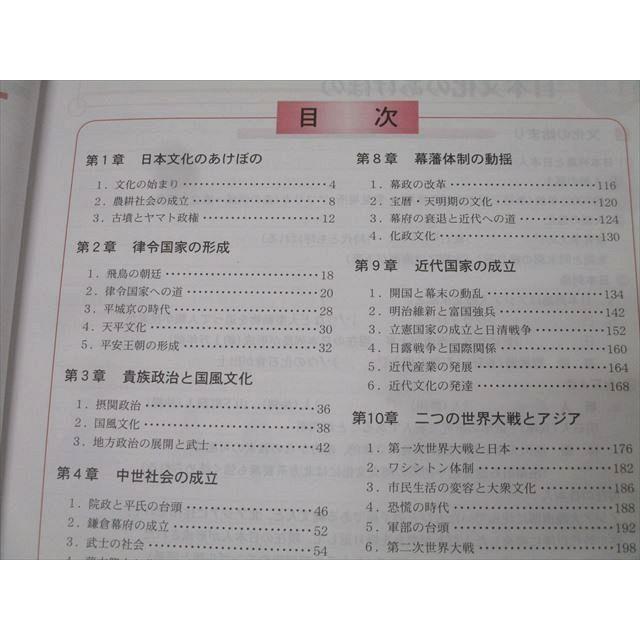 目　次
第1章　日本文化のあけぼの
1．文化の始まり………………4
2．農耕社会の成立………………8
3．古墳とヤマト政権………………12
第2章　律令国家の形成
1．飛鳥の朝廷………………18
2．律令国家への道………………20
3．平城京の時代………………28
4．天平文化………………30
5．平安王朝の形成………………32
第3章　貴族政治と国風文化
1．摂関政治………………36
2．国風文化………………38
3．地方政治の展開と武士………………42
第4章　中世社会の成立
1．院政と平氏の台頭………………46
2．鎌倉幕府の成立………………52
3．武士の社会………………54
第8章　幕藩体制の動揺
1．幕政の改革………………116
2．宝暦・天明期の文化………………120
3．幕府の衰退と近代への道………………124
4．化政文化………………130
第9章　近代国家の成立
1．開国と幕末の動乱………………134
2．明治維新と富国強兵………………142
3．立憲国家の成立と日清戦争………………152
4．日露戦争と国際関係………………160
5．近代産業の発展………………164
6．近代文化の発達………………168
第10章　二つの世界大戦とアジア
1．第一次世界大戦と日本………………176
2．ワシントン体制………………182
3．市民生活の変容と大衆文化………………186
4．恐慌の時代………………188
5．軍部の台頭………………192
6．第二次世界大戦………………198